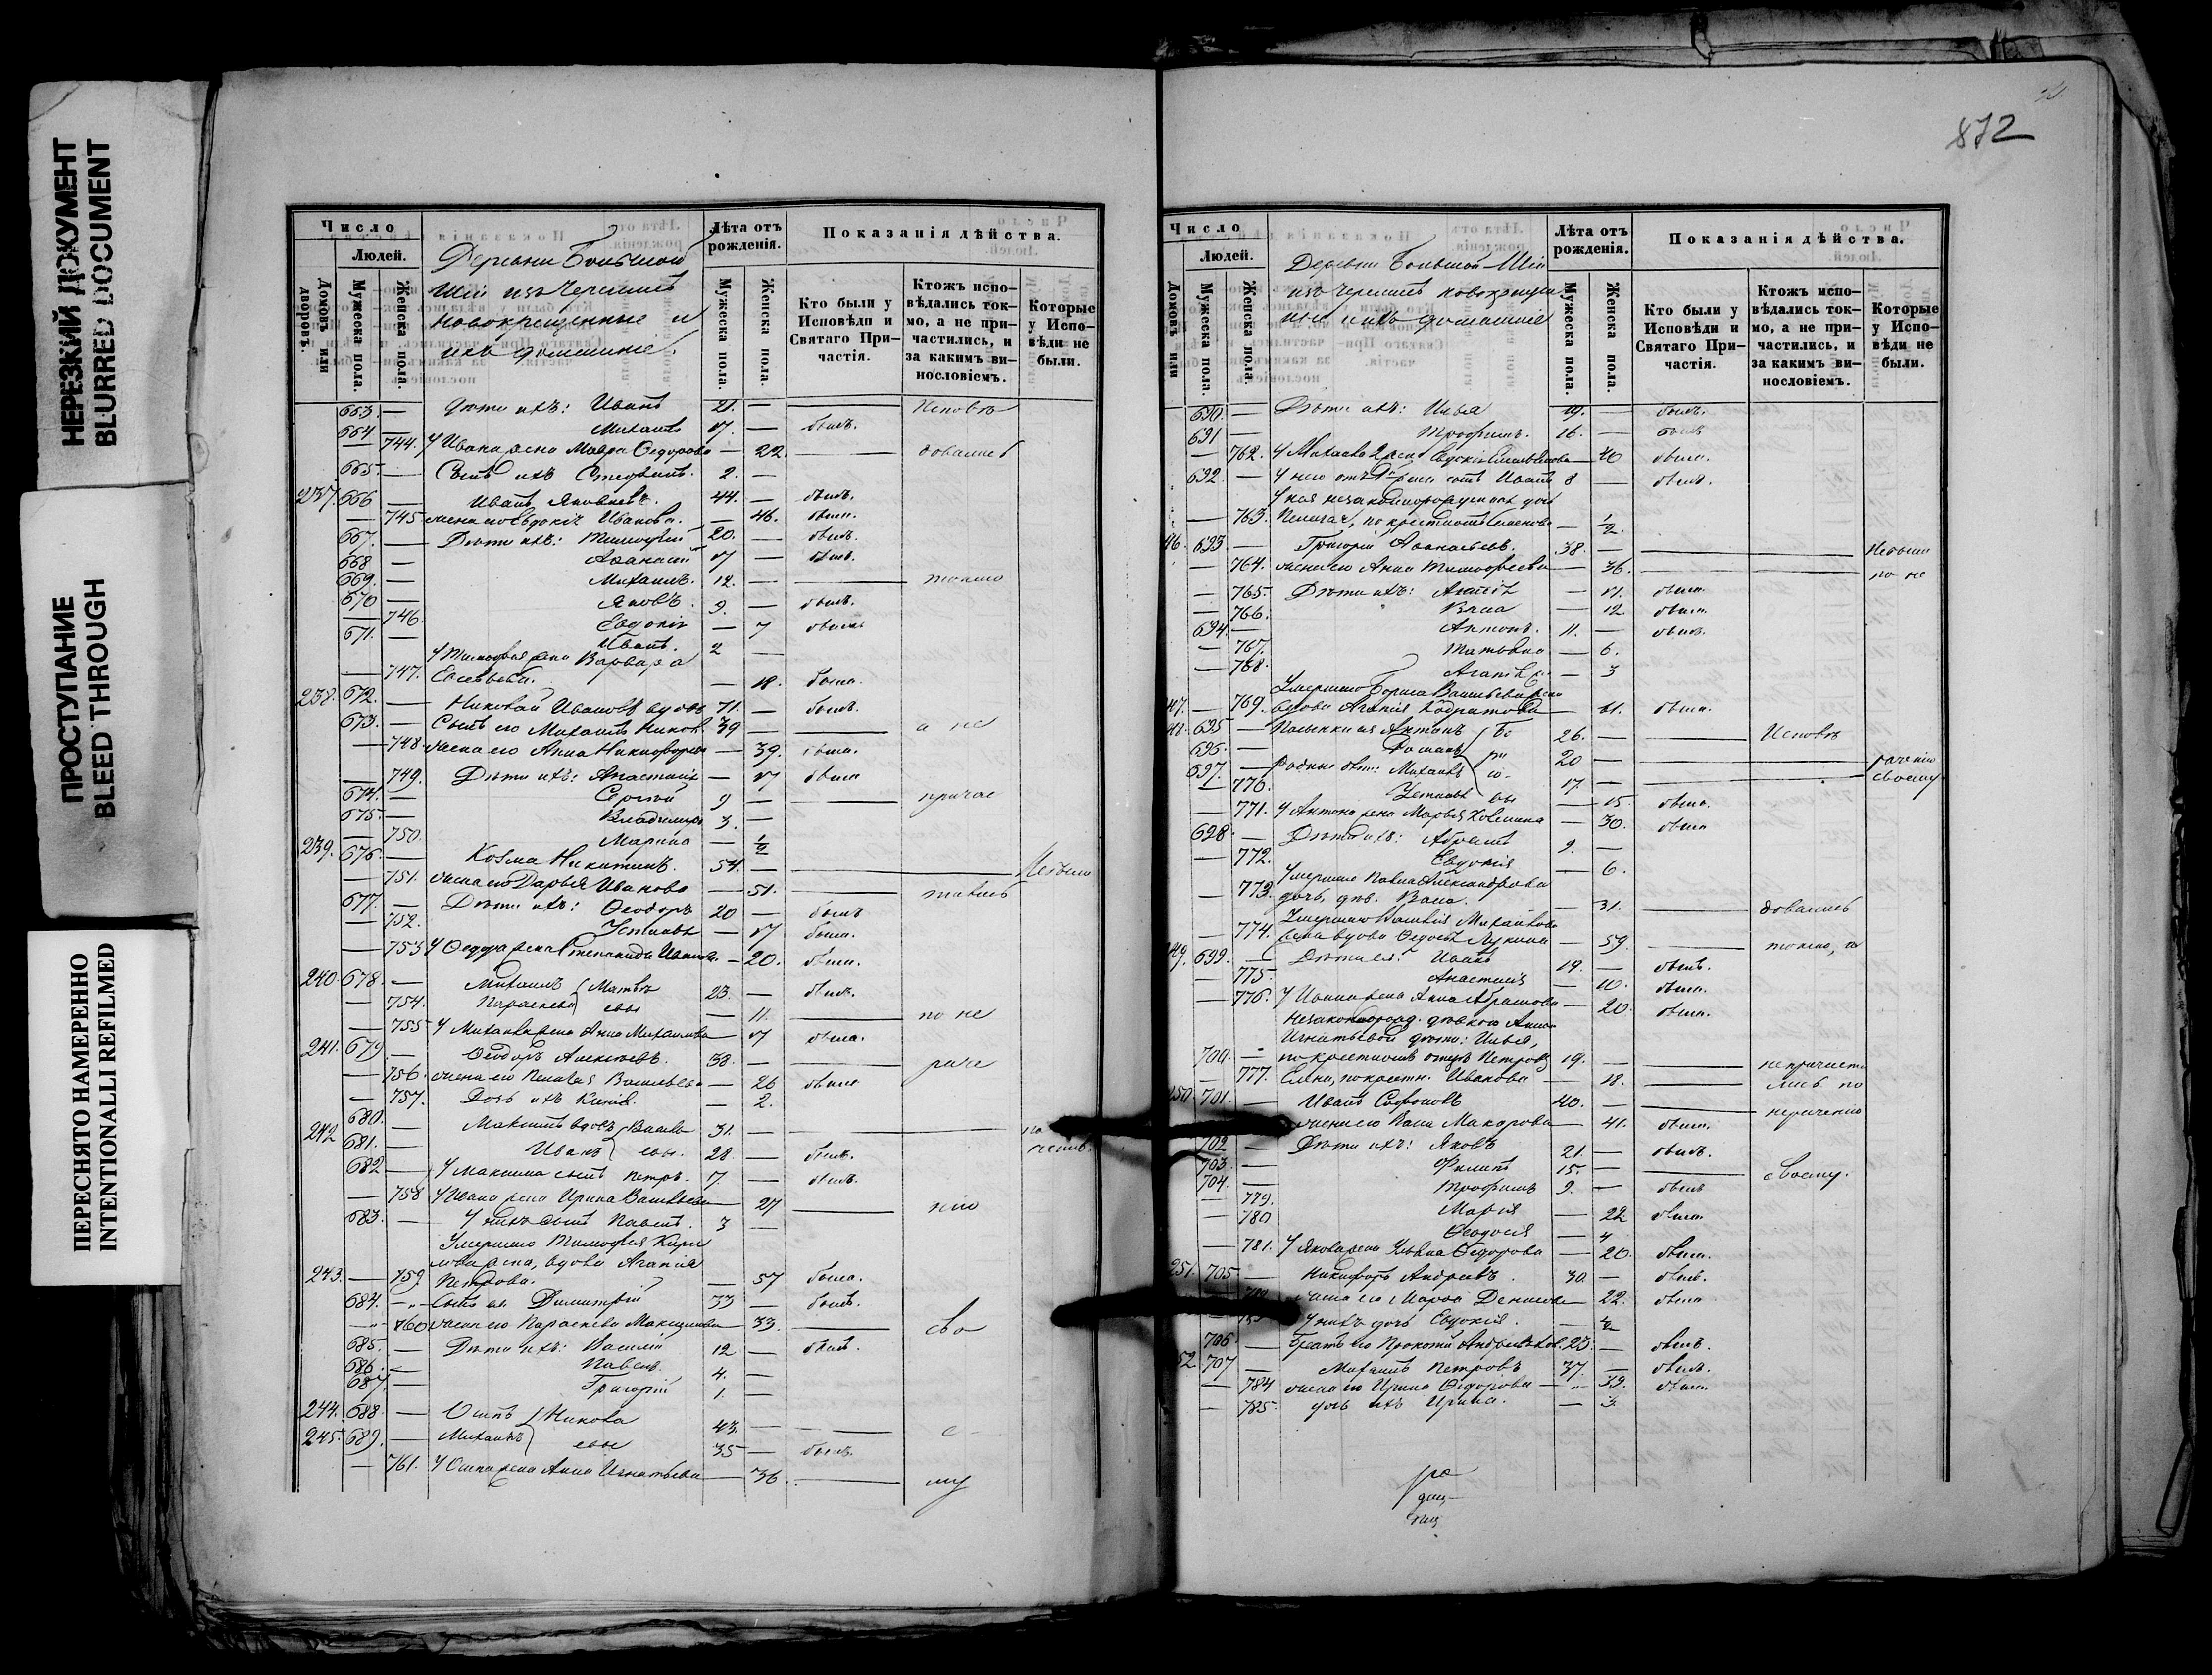 НЕРЕЗКИЙ ДОКУМЕНТ
BLURRED DOCUMENT
ПРОСТУПАНИЕ
BLEED THROUGH
ПЕРЕСНЯТО НАМЕРЕННО
INTENTIONALLI REFILMED
Число
Домовъ или дворовъ.
Людей.
Мужеска пола.
Женска пола.
Деревни Большой
Шіи изъ Черемисъ
Новокрещенные и
ихъ домашніе.
Лѣта отъ рожденія.
Мужеска пола.
Женска пола.
Показанія дѣйства.
Кто были у Исповѣди и Святаго Причастія.
Ктожъ исповѣдались токмо, а не причастились, и за какимъ винословіемъ.
Которые у Исповѣди не были.
663. — Дѣти ихъ: Иванъ 21. — — Исповѣ
664 — Михаилъ 17. — былъ.
— 744. У Ивана жена Мавра Ѳедорова — 22. — довались
665 — Сынъ ихъ Стефанъ. 2. —
237. 666 — Иванъ Яковлевъ. 44. — былъ.
— 745. жена его Евдокія Иванова. — 46. была.
667. — Дѣти ихъ: Тимофей 20. — былъ.
668 — Аѳанасій 17 — былъ.
669. — Михаилъ. 12. — — токмо
670 — Яковъ. 9. — былъ.
— 746. Евдокія — 7 была
671. — Иванъ. 2 —
У Тимофея жена Варвара
— 747. Евсевьева. — 18. была.
238. 672. — Николай Ивановъ вдовъ 71. — былъ.
673. — Сынъ его Михаилъ Никол. 39 — — а не
— 748. жена его Анна Никифорова — 39. была.
— 749. Дѣти ихъ: Анастасія — 17 была
674. — Сергѣй 9 — — причас
675. — Владимиръ 3. —
— 750. Марина — 1/2
239. 676. — Козма Никитинъ. 54. — — Небыли
— 751. жена его Дарья Иванова — 51. — тились
677. — Дѣти ихъ: Ѳеодоръ 20 — былъ
— 752. Устинья — 17 была.
— 753 У Ѳедора жена Степанида Иванова — 20. была.
240. 678. — Михаилъ Матвѣ 23. — былъ.
— 754. Параскева евы — 11. — по не
— 755 У Михаила жена Анна Михайлова — 17 была.
241. 679 — Ѳеодоръ Алексѣевъ. 38. — — раче
— 756. жена его Пелагея Васильева — 26 была
— 757. Дочь ихъ — 2.
242 680. — Максимъ вдовъ Василь 31. — — по
681. — Иванъ евы. 28 — былъ.
682 — У Максима сынъ Петръ. 7. — былъ.
— 758 У Ивана жена Ирина Васильева — 27 — нію
683. — У нихъ сынъ Павелъ. 3 —
Умершаго Тимофея Кири
лова жена, вдова Агапія
243. — 759. Петрова. — 57 была.
684. — Сынъ ея Димитрій 33 — былъ.
— 760 жена его Параскева Максимова — 33. — сво
685. — Дѣти ихъ: Василій 12 — былъ.
686. — Павелъ. 4. —
687. — Григорій 1. —
244. 688. — Осипъ Никола 43. — — е
245. 689. — Михаилъ евы 35 — былъ.
— 761. У Осипа жена Анна Игнатьева — 36. — му
872
Число
Домовъ или
Людей.
Мужеска пола.
Женска пола.
Деревни Большой Шіи
изъ Черемисъ новокрещен
ные и ихъ домашніе
Лѣта отъ рожденія.
Мужеска пола.
Женска пола.
Показанія дѣйства.
Кто были у Исповѣди и Святаго Причастія.
Ктожъ исповѣдались токмо, а не причастились, и за какимъ винословіемъ.
Которые у Исповѣди не были.
690. — Дѣти ихъ: Илья 19. — былъ.
691 — Трофимъ. 16. — былъ
— 762. У Михаила 2 жена Евдокія Емельянова — 40 была.
692. — У него отъ 1й жены сынъ Иванъ 8 — былъ.
— 763. Пелагея, по крестному Семенова — 1/2.
46. 693. — Григорій Аѳанасьевъ. 38. — — Небыли
— 764. жена его Анна Тимофеева — 36. — по не
— 765. Дѣти ихъ: Агапія — 17. была.
— 766. Васса — 12. была.
694. — Антонъ. 11. — былъ.
— 767. Татьяна — 6.
— 768. — 3
Умершаго Бориса Васильева жена
47. — 769. вдова Агапія Кодратова — 61. была.
48. 695 — Пасынки ея Антонъ Бо 26. — — Исповѣ
696. — Романъ ри 20 — — рачению
697. — родные дѣти: Михаилъ со- 17. — — своему
— 770. Устинья вы — 15. была.
— 771. У Антона жена Марья — 30. была
698. — Дѣти ихъ: Абрамъ 9. —
— 772. Евдокія — 6.
Умершаго Павла Александрова
— 773. дочь, дѣв. Васса. — 31. — довались
Умершаго Василія Михайлова
— 774. жена вдова Ѳедосья Лукина — 59. — токмо, а
49. 699. — Дѣти ея: Иванъ 19. — былъ.
— 775. Анастасія — 10. была.
— 776. У Ивана жена Анна Абрамова — 20. была.
Незаконнорожд. дѣвкою Анною
Игнатьевой дѣти: Илья,
700. — по крестному отцу Петровъ 19. — — непричасти
— 777. Елена, по крестн. Иванова — 18. — лись по
250 701. — Иванъ Софоновъ 40. — — нерачению
жена его Васса Макарова — 41. была.
702 — Дѣти ихъ: Яковъ 21. — былъ.
703. — Филипъ 15. — — своему.
704. — Трофимъ 9. — былъ
— 779. Марія — 22 была
— 780 Ѳеодосія — 4
— 781. У Якова жена Ульяна Ѳедорова — 20. была.
251. 705 — Никифоръ Андреевъ. 30. — былъ.
жена его Марѳа Денисова — 22. была
У нихъ дочь Евдокія. — 1/2
706 — Братъ его Прокопій Андреевъ хол. 23. — былъ.
52 707 — Михаилъ Петровъ 37. — былъ.
— 784 жена его Ирина Ѳедорова — 39. была
— 785. дочь ихъ Ирина. — 3